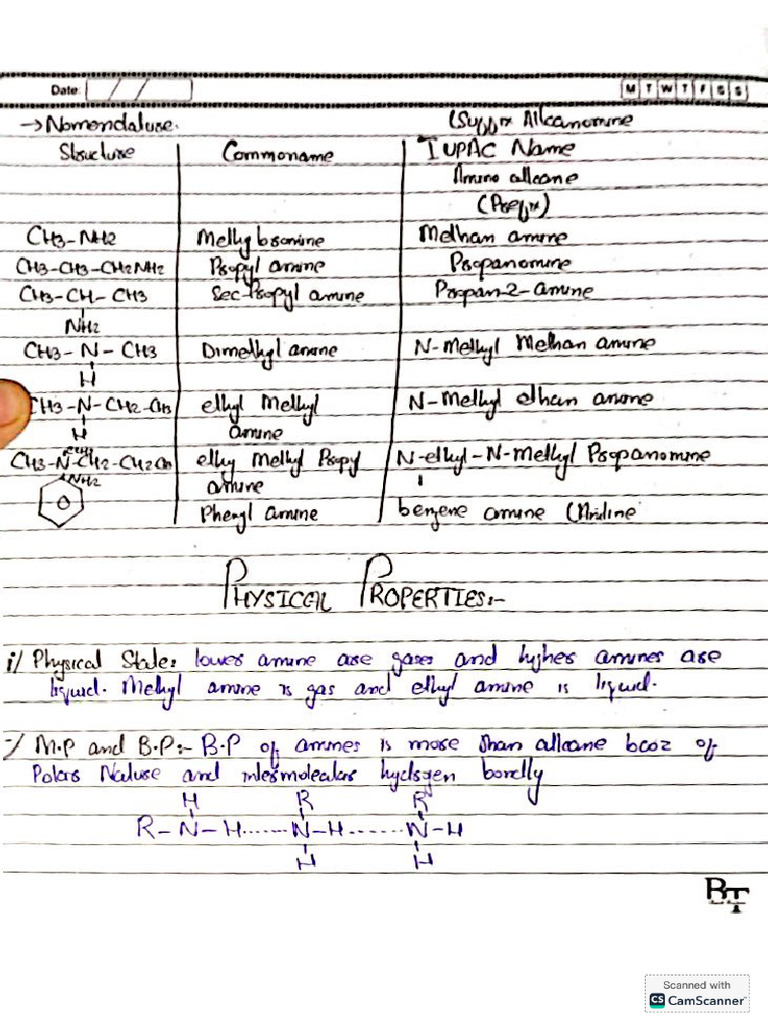 Date / / M T W T F S S
→ Nomenclature. (Suffix Alkanamine
Structure Common name IUPAC Name
Amino alkane
(Prefix)
CH3-NH2 Methyl amine Methan amine
CH3-CH3-CH2NH2 Propyl amine Propanamine
CH3-CH-CH3 Sec-Propyl amine Propan-2-amine
NH2
CH3-N-CH3 Dimethyl amine N-Methyl Methan amine
H
CH3-N-CH2-CH3 ethyl Methyl N-Methyl ethan amine
H amine
CH3-N-CH2-CH2 ethy Methyl Propyl N-ethyl-N-methyl Propanamine
NH2 amine
Phenyl amine benzene amine (Aniline
PHYSICAL PROPERTIES:-
i/ Physical State: lower amine are gases and higher amines are
liquid. Methyl amine is gas and ethyl amine is liquid.
M.P and B.P:- B.P of amines is more than alkane bcoz of
Polar Nature and intermolecular hydrogen bondly
H R R
R-N-H......N-H......N-H
H H
BT
Scanned with
CS CamScanner